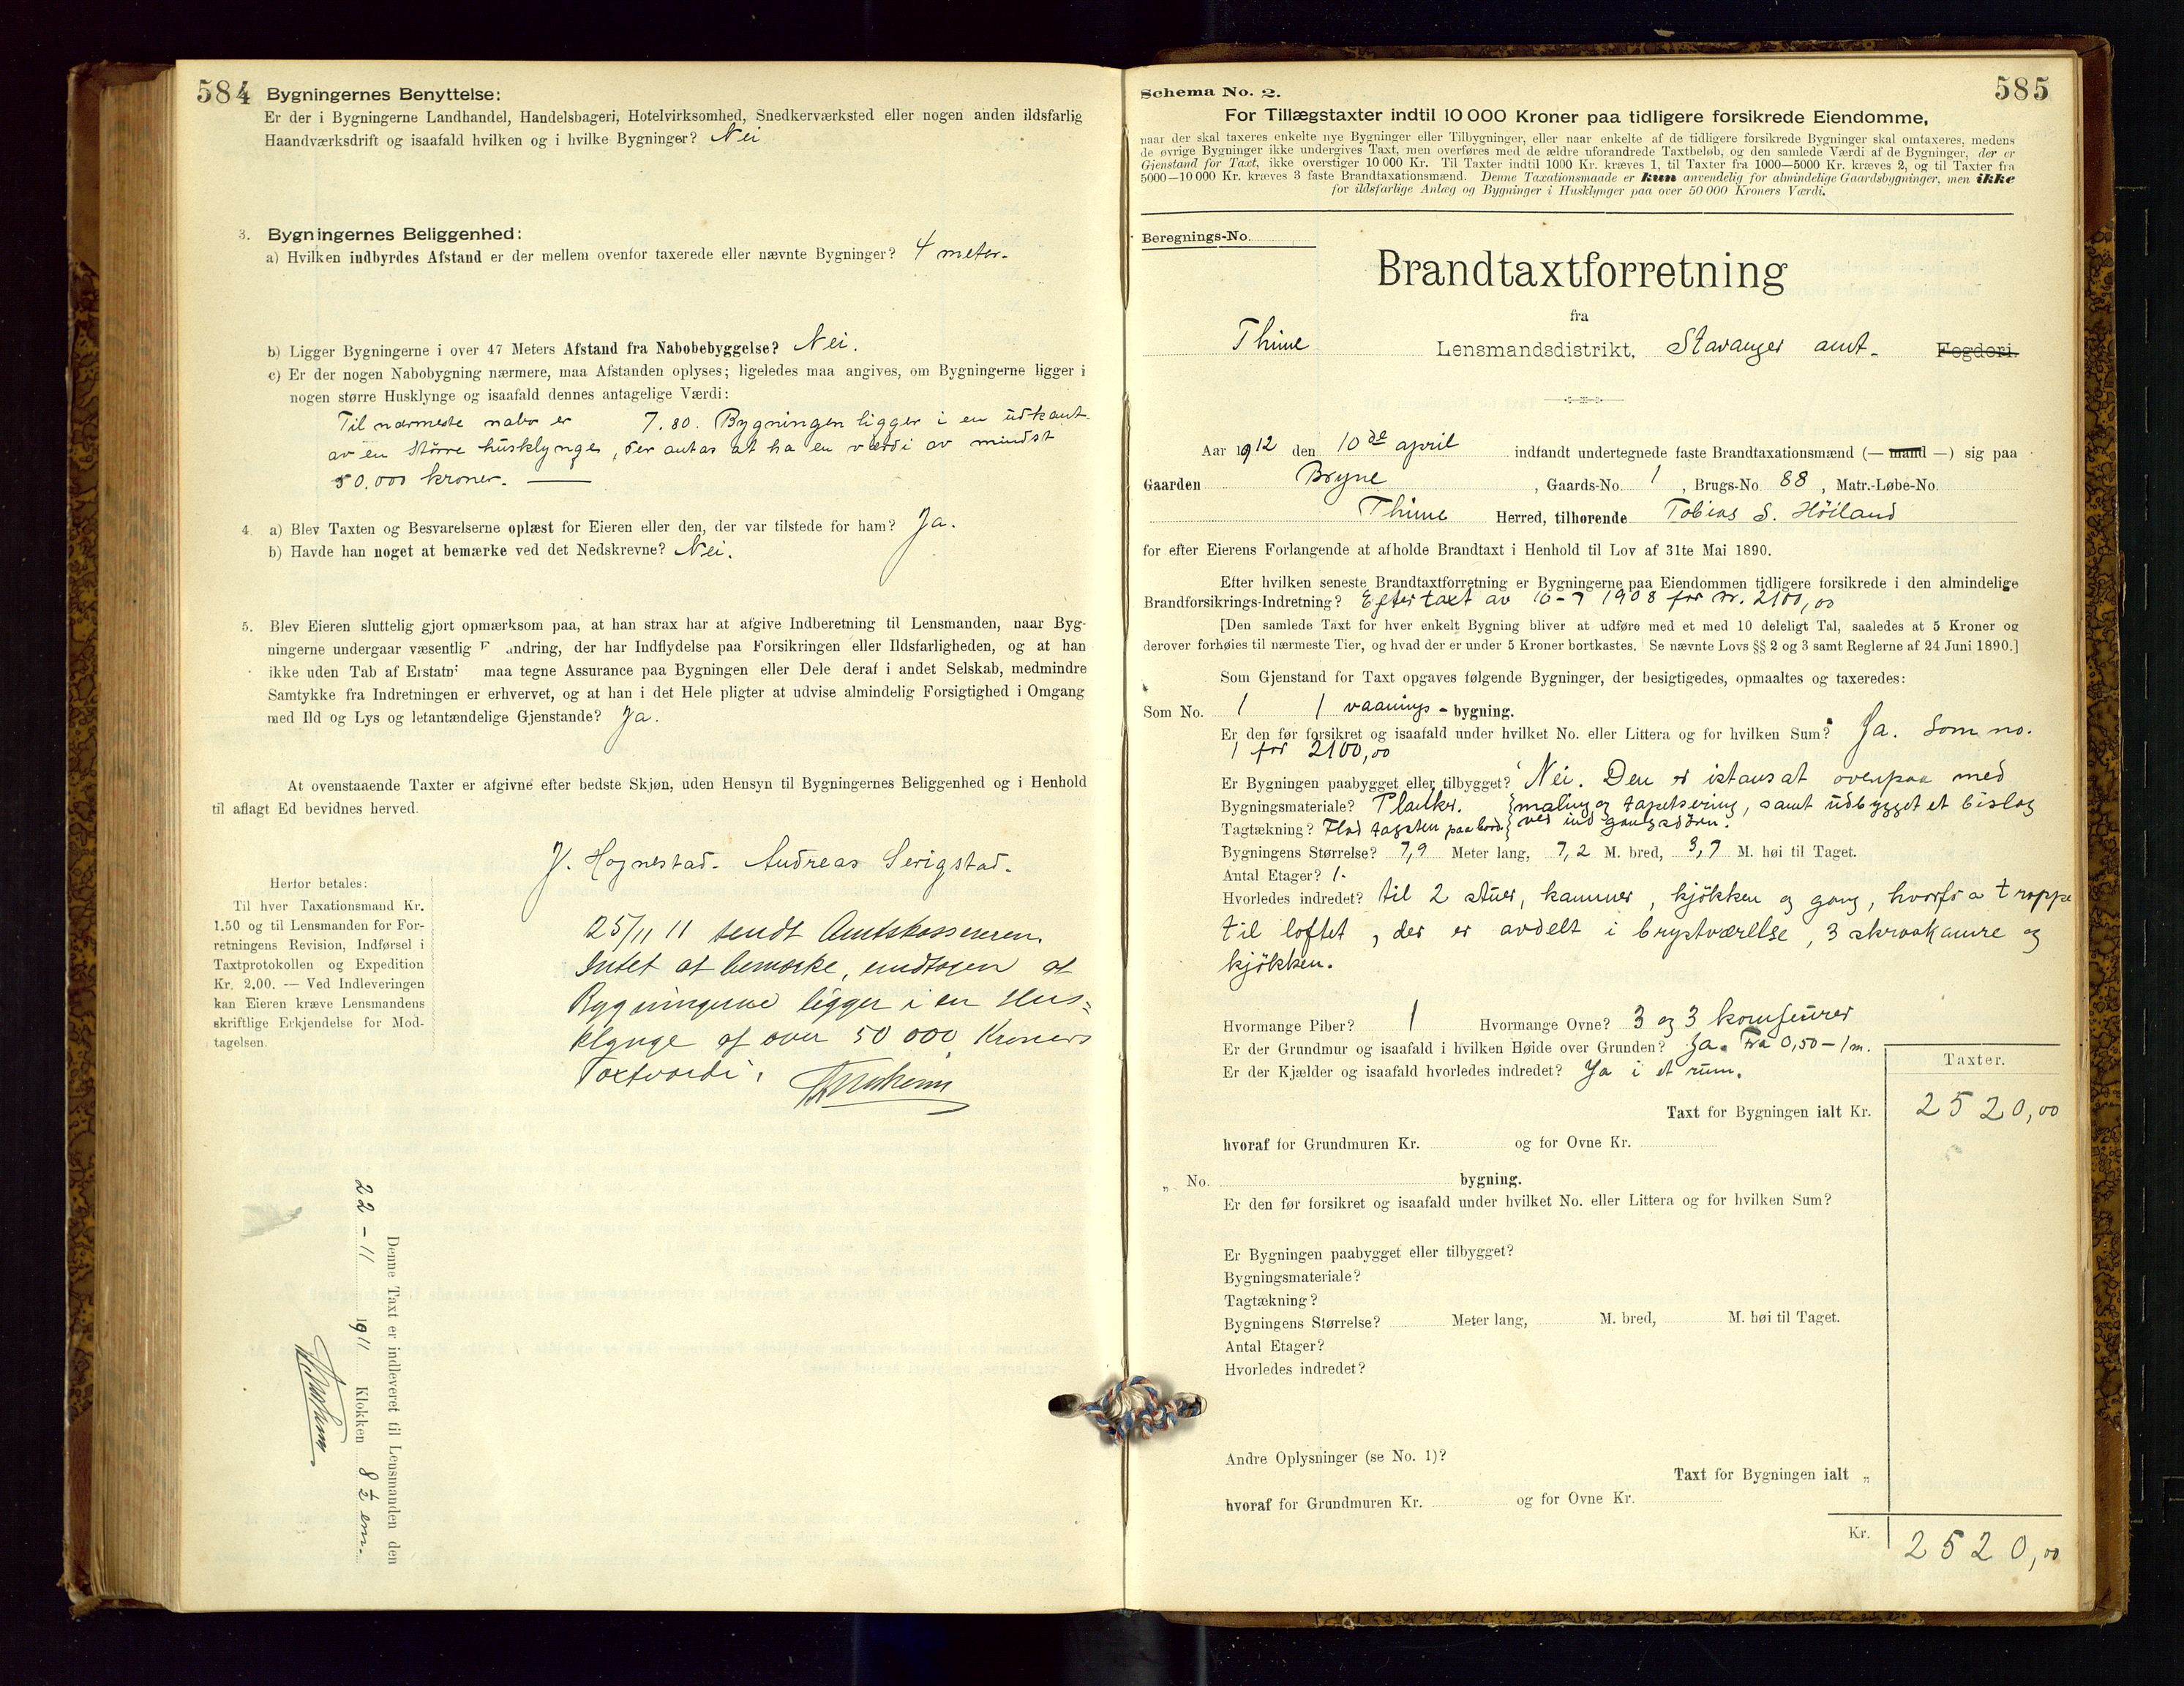 584
Bygningernes Benyttelse:
Er der i Bygningerne Landhandel, Handelsbageri, Hotelvirksomhed, Snedkerværksted eller nogen anden ildsfarlig
Haandværksdrift og isaafald hvilken og i hvilke Bygninger? Nei
3. Bygningernes Beliggenhed:
a) Hvilken indbyrdes Afstand er der mellem ovenfor taxerede eller nævnte Bygninger? 4 meter.
b) Ligger Bygningerne i over 47 Meters Afstand fra Nabobebyggelse? Nei.
c) Er der nogen Nabobygning nærmere, maa Afstanden oplyses; ligeledes maa angives, om Bygningerne ligger i
nogen større Husklynge og isaafald dennes antagelige Værdi:
Til nærmeste nabo er 7.80. Bygningen ligger i en udkant
av en større husklynge, der antas at ha en værdi av mindst
50.000 kroner.
4. a) Blev Taxten og Besvarelserne oplæst for Eieren eller den, der var tilstede for ham? Ja.
b) Havde han noget at bemærke ved det Nedskrevne? Nei.
5. Blev Eieren sluttelig gjort opmærksom paa, at han strax har at afgive Indberetning til Lensmanden, naar Byg-
ningerne undergaar væsentlig F andring, der har Indflydelse paa Forsikringen eller Ildsfarligheden, og at han
ikke uden Tab af Erstatn maa tegne Assurance paa Bygningen eller Dele deraf i andet Selskab, medmindre
Samtykke fra Indretningen er erhvervet, og at han i det Hele pligter at udvise almindelig Forsigtighed i Omgang
med Ild og Lys og letantændelige Gjenstande? Ja.
At ovenstaaende Taxter er afgivne efter bedste Skjøn, uden Hensyn til Bygningernes Beliggenhed og i Henhold
til aflagt Ed bevidnes herved.
J. Hognestad. Andreas Serigstad.
Herfor betales:
Til hver Taxationsmand Kr.
1.50 og til Lensmanden for For-
retningens Revision, Indførsel i
Taxtprotokollen og Expedition
Kr. 2.00. — Ved Indleveringen
kan Eieren kræve Lensmandens
skriftlige Erkjendelse for Mod-
tagelsen.
25/11 11 sendt Amtskassereren.
Intet at bemærke, undtagen at
Bygningerne ligger i en Hus-
klynge af over 50 000 Kroners
Taxtværdi.
Denne Taxt er indleveret til Lensmanden den
22-11 1911 Klokken 8 1/2 em.
585
Schema No. 2.
For Tillægstaxter indtil 10 000 Kroner paa tidligere forsikrede Eiendomme,
naar der skal taxeres enkelte nye Bygninger eller Tilbygninger, eller naar enkelte af de tidligere forsikrede Bygninger skal omtaxeres, medens
de øvrige Bygninger ikke undergives Taxt, men overføres med de ældre uforandrede Taxtbeløb, og den samlede Værdi af de Bygninger, der er
Gjenstand for Taxt, ikke overstiger 10 000 Kr. Til Taxter indtil 1000 Kr. kræves 1, til Taxter fra 1000—5000 Kr. kræves 2, og til Taxter fra
5000—10 000 Kr. kræves 3 faste Brandtaxationsmænd. Denne Taxationsmaade er kun anvendelig for almindelige Gaardsbygninger, men ikke
for ildsfarlige Anlæg og Bygninger i Husklynger paa over 50 000 Kroners Værdi.
Beregnings-No.
Brandtaxtforretning
fra
Thime Lensmandsdistrikt, Stavanger amt. Fogderi.
Aar 1912 den 10de april indfandt undertegnede faste Brandtaxationsmænd (— mand —) sig paa
Gaarden Bryne, Gaards-No. 1, Brugs-No. 88, Matr.-Løbe-No.
Thime Herred, tilhørende Tobias S. Høiland
for efter Eierens Forlangende at afholde Brandtaxt i Henhold til Lov af 31te Mai 1890.
Efter hvilken seneste Brandtaxtforretning er Bygningerne paa Eiendommen tidligere forsikrede i den almindelige
Brandforsikrings-Indretning? Efter taxt av 10-7 1908 for kr. 2100,00
[Den samlede Taxt for hver enkelt Bygning bliver at udføre med et med 10 deleligt Tal, saaledes at 5 Kroner og
derover forhøies til nærmeste Tier, og hvad der er under 5 Kroner bortkastes. Se nævnte Lovs §§ 2 og 3 samt Reglerne af 24 Juni 1890.]
Som Gjenstand for Taxt opgaves følgende Bygninger, der besigtigedes, opmaaltes og taxeredes:
Som No. 1 1 vaanings - bygning.
Er den før forsikret og isaafald under hvilket No. eller Littera og for hvilken Sum? Ja. Som no.
1 for 2100,00
Er Bygningen paabygget eller tilbygget? Nei. Den er istansat ovenpaa med
Bygningsmateriale? Planker. maling og tapetsering, samt udbygget et bislag
Tagtækning? Flad tagsten paa bord ved indgangsdøren.
Bygningens Størrelse? 7,9 Meter lang, 7,2 M. bred, 3,7 M. høi til Taget.
Antal Etager? 1.
Hvorledes indredet? til 2 stuer, kammer, kjøkken og gang, hvorfra troppe
til loftet, der er avdelt i brystværelse, 3 skraakamre og
kjøkken.
Hvormange Piber? 1 Hvormange Ovne? 3 og 3 komfeurer
Er der Grundmur og isaafald i hvilken Høide over Grunden? Ja. Fra 0,50-1m.
Er der Kjælder og isaafald hvorledes indredet? Ja i et rum.
Taxter.
Taxt for Bygningen ialt Kr. 2520,00
hvoraf for Grundmuren Kr. og for Ovne Kr.
„ No. bygning.
Er den før forsikret og isaafald under hvilket No. eller Littera og for hvilken Sum?
Er Bygningen paabygget eller tilbygget?
Bygningsmateriale?
Tagtækning?
Bygningens Størrelse? Meter lang, M. bred, M. høi til Taget.
Antal Etager?
Hvorledes indredet?
Andre Oplysninger (se No. 1)?
Taxt for Bygningen ialt „
hvoraf for Grundmuren Kr. og for Ovne Kr.
Kr. 2520,00